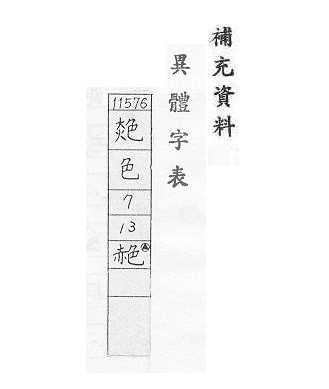 補充資料
異體字表
11576
色
7
13
赩